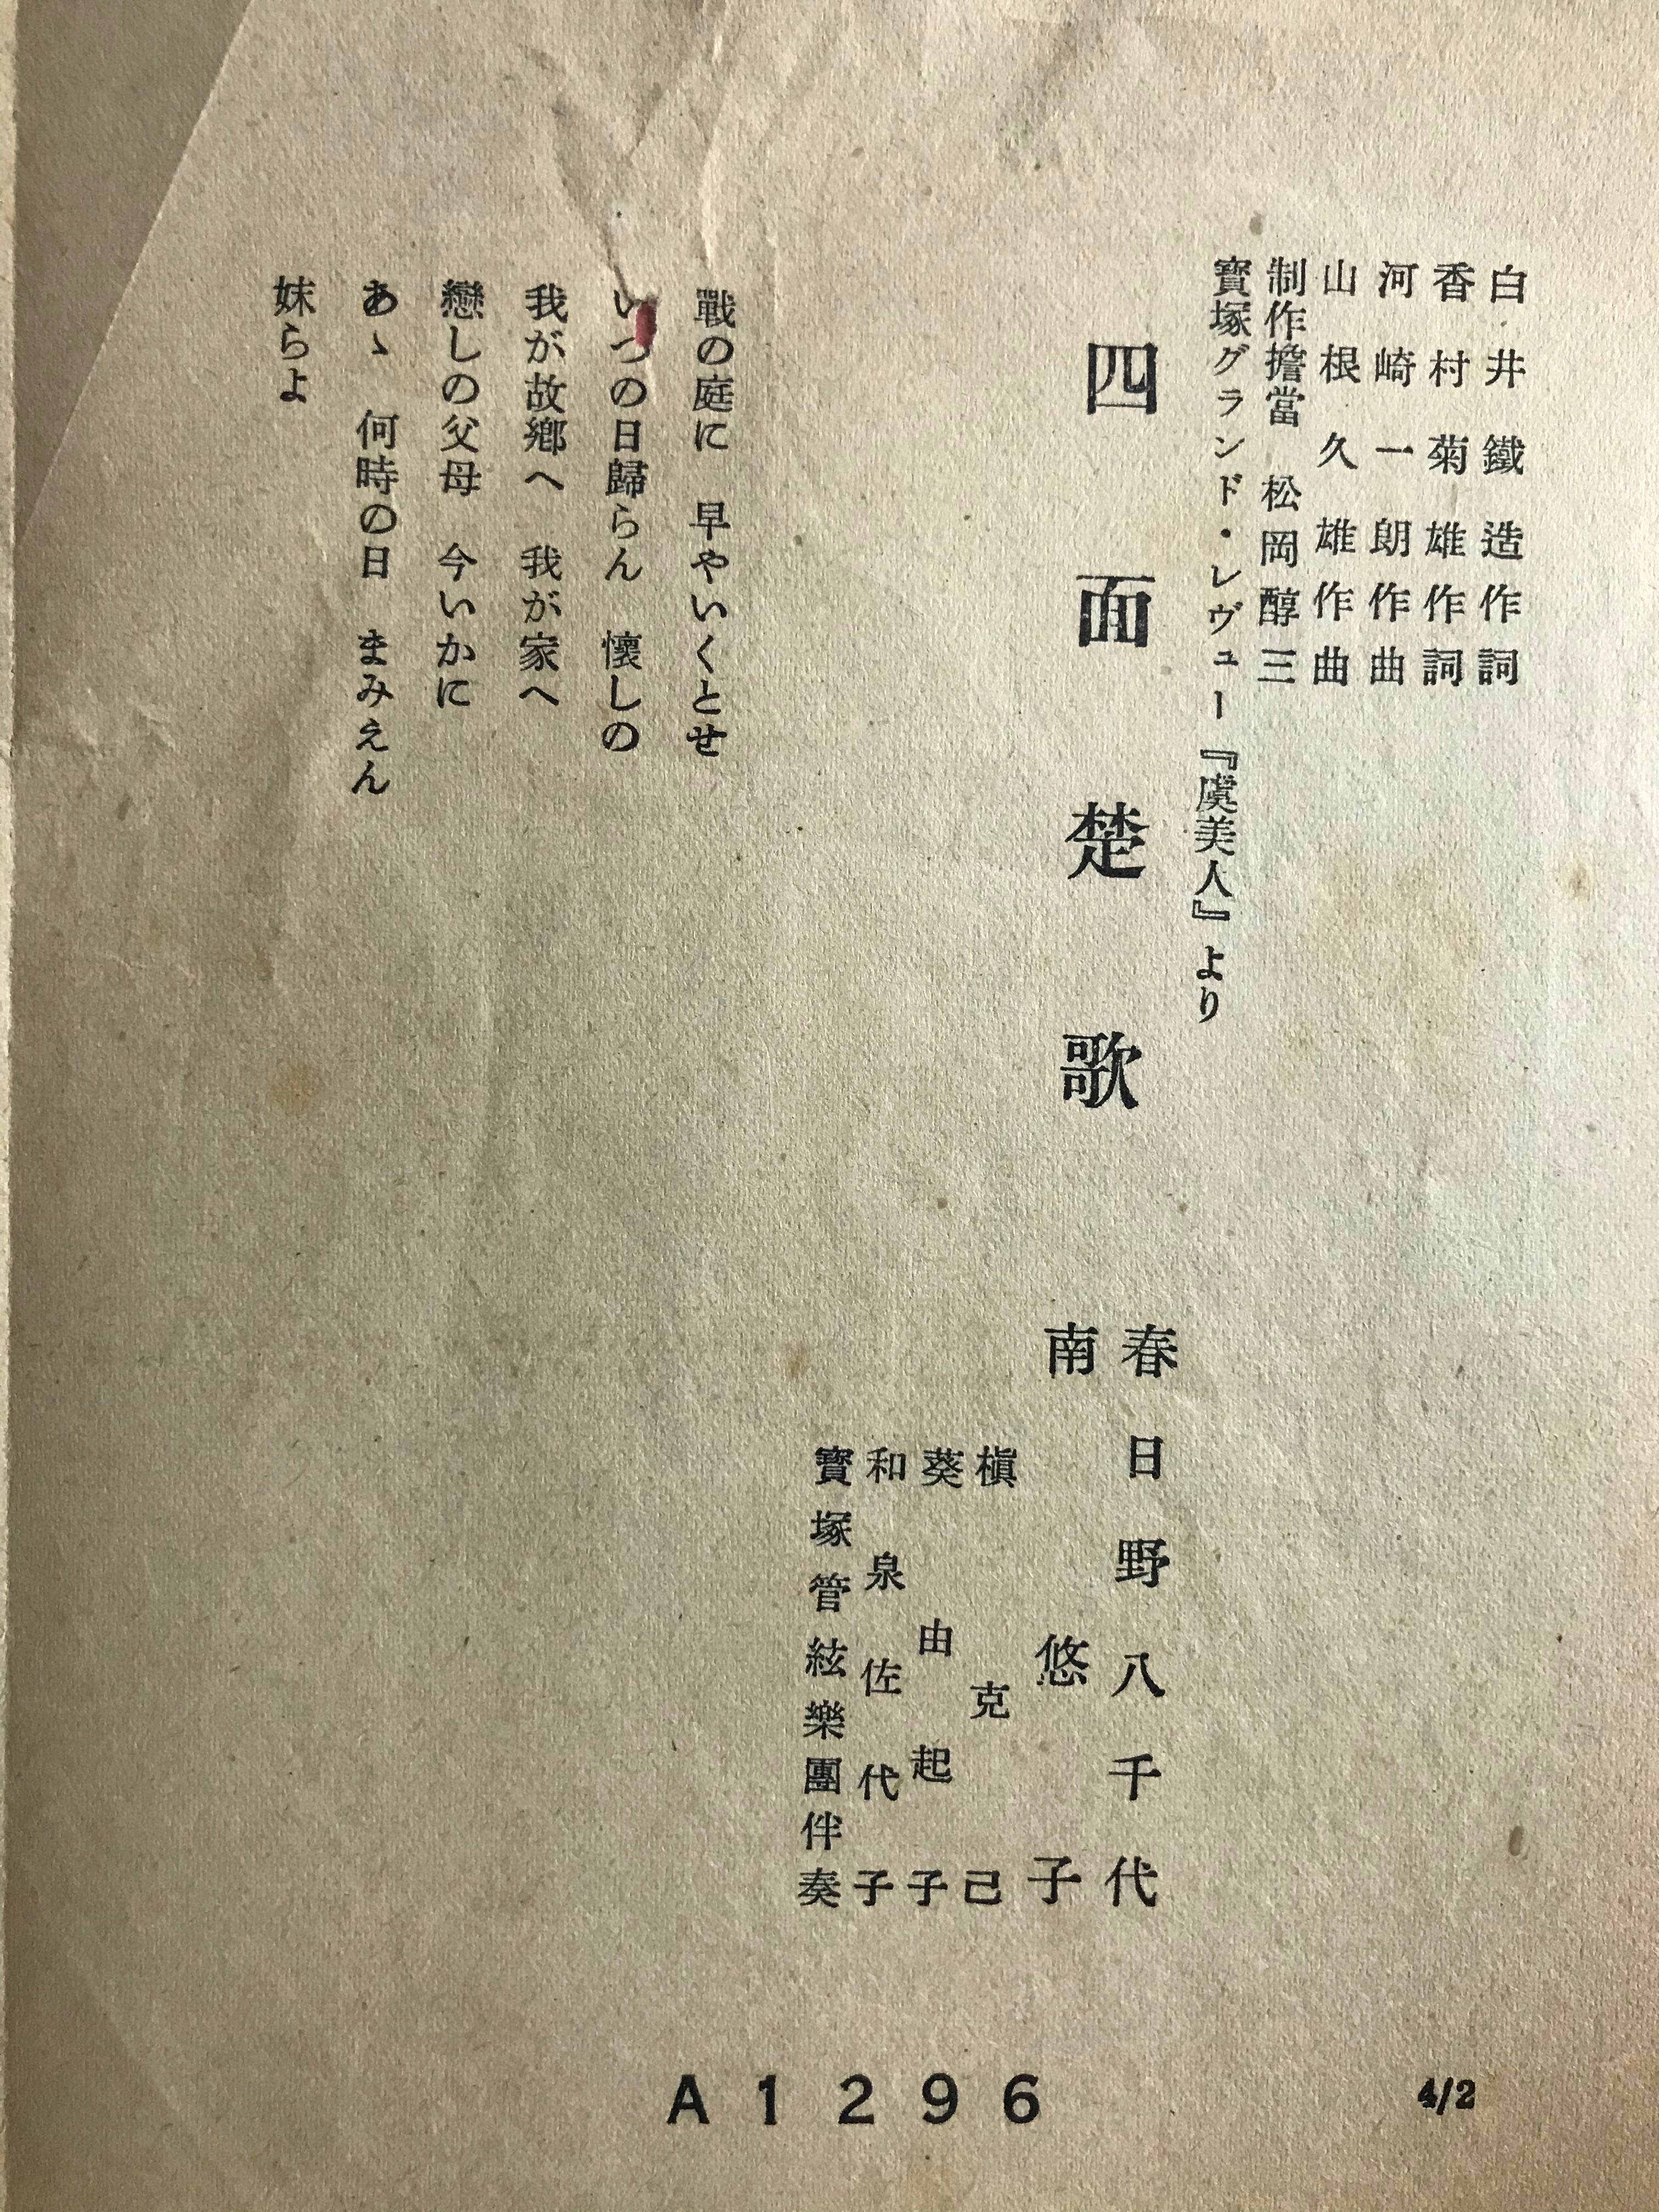 白井鐵造作詞
香村菊雄作詞
河崎一朗作曲
山根久雄作曲
制作擔當　松岡醇三
寳塚グランド・レヴュー『虞美人』より
四面楚歌
春日野八千代
南悠子
槇克己
葵由起子
和泉佐代子
寳塚管絃樂團伴奏
戰の庭に　早やいくとせ
いつの日歸らん　懷しの
我が故鄕へ　我が家へ
戀しの父母　今いかに
あゝ　何時の日　まみえん
妹らよ
A1296
4/2